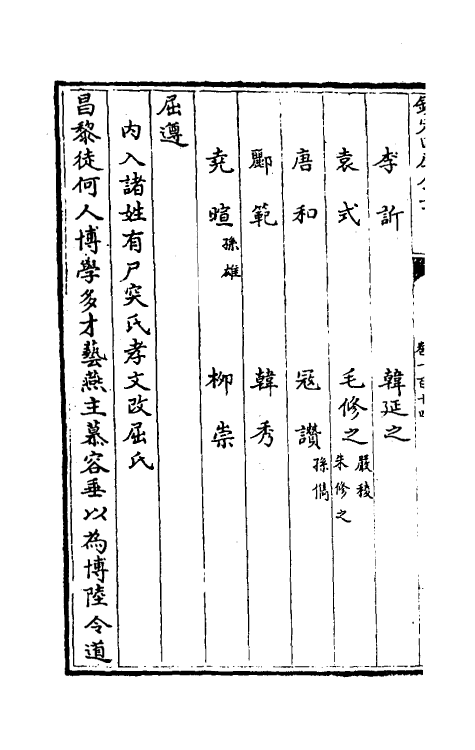 李訢　韓延之
袁式　毛修之嚴稜朱修之
唐和　冦讚孫儁
酈範　韓秀
堯暄孫雄　柳崇
屈遵
内入諸姓有尸突氏孝文改屈氏
昌黎徒何人博學多才藝燕主慕容垂以為博陸令道